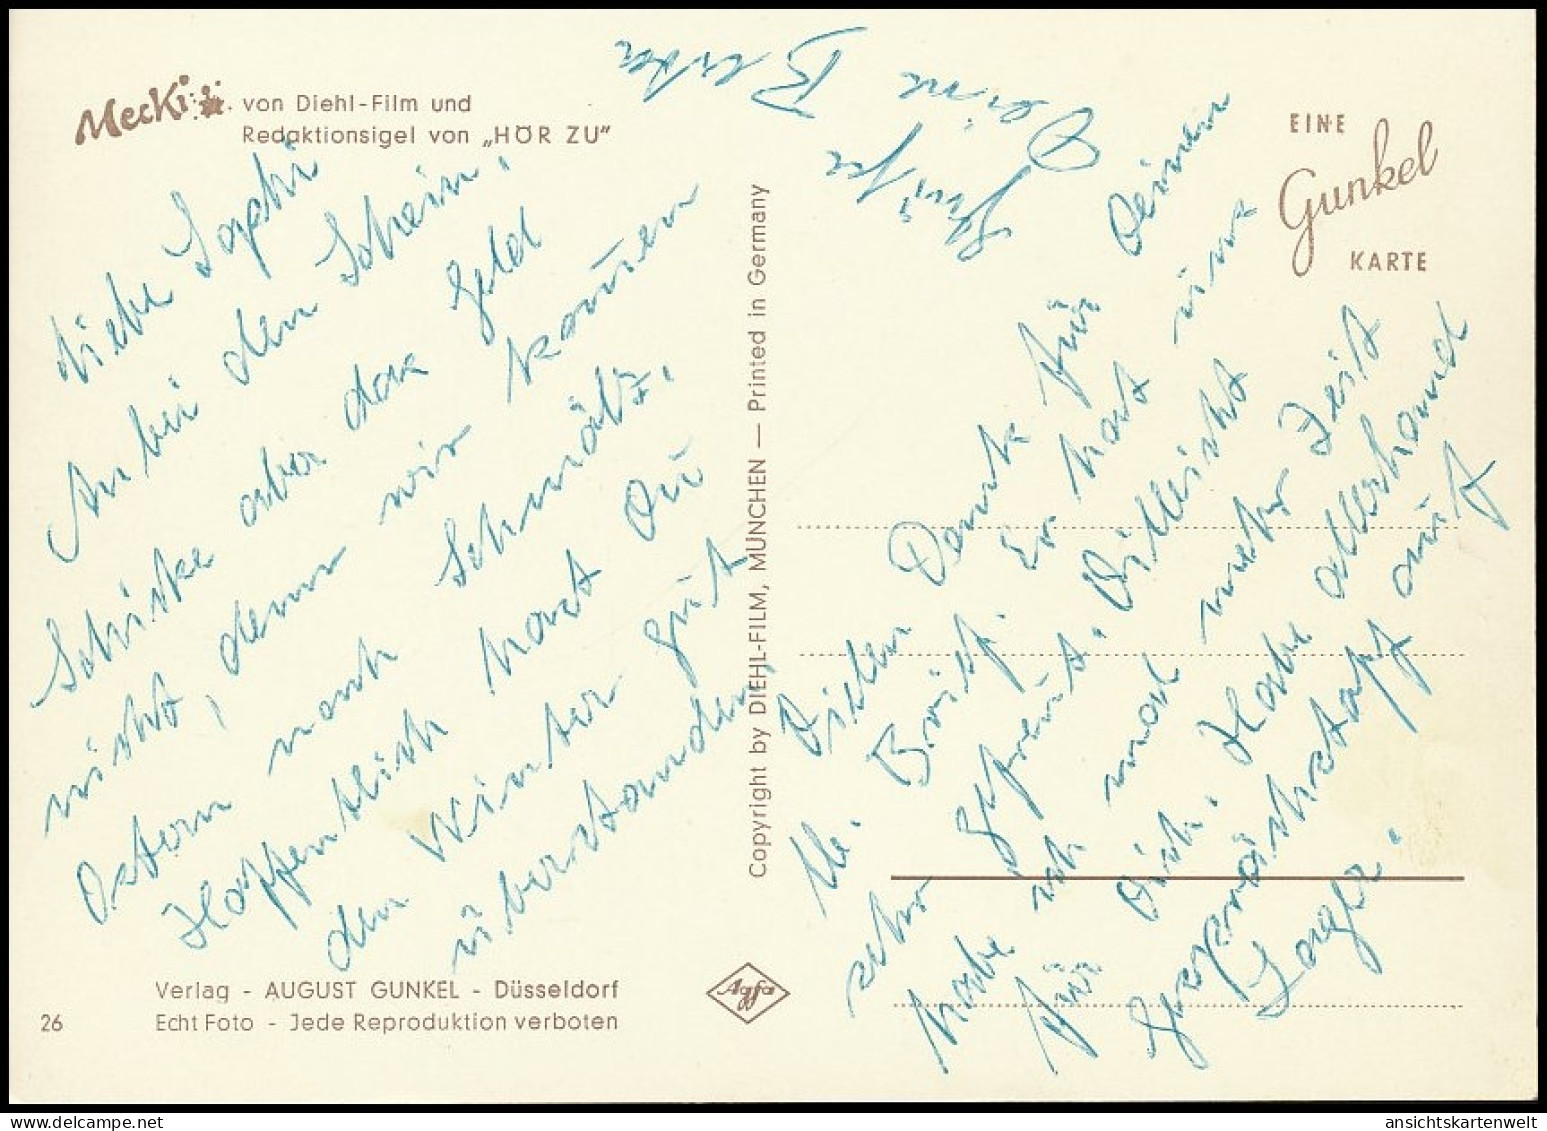 Mecki von Diehl-Film und
Redaktionsigel von „HÖR ZU"
Liebe Sophi
Anbei den Schein,
Schicke aber das Geld
nicht, denn wir kommen
Ostern nach Schmalz.
Hoffentlich hast Du
den Winter gut
überstanden,
Copyright by DIEHL-FILM, MÜNCHEN — Printed in Germany
EINE
Gunkel
KARTE
Vielen Dank für Deinen
lb. Brief. Er hat uns
sehr gefreut. Villeicht
habe ich mal mehr Zeit
für Dich. Habe allerhand
Gesprächstoff auf
Lager.
Grüße
Deine Berta
Verlag - AUGUST GUNKEL - Düsseldorf
26 Echt Foto - Jede Reproduktion verboten
Agfa
ansichtskartenwelt